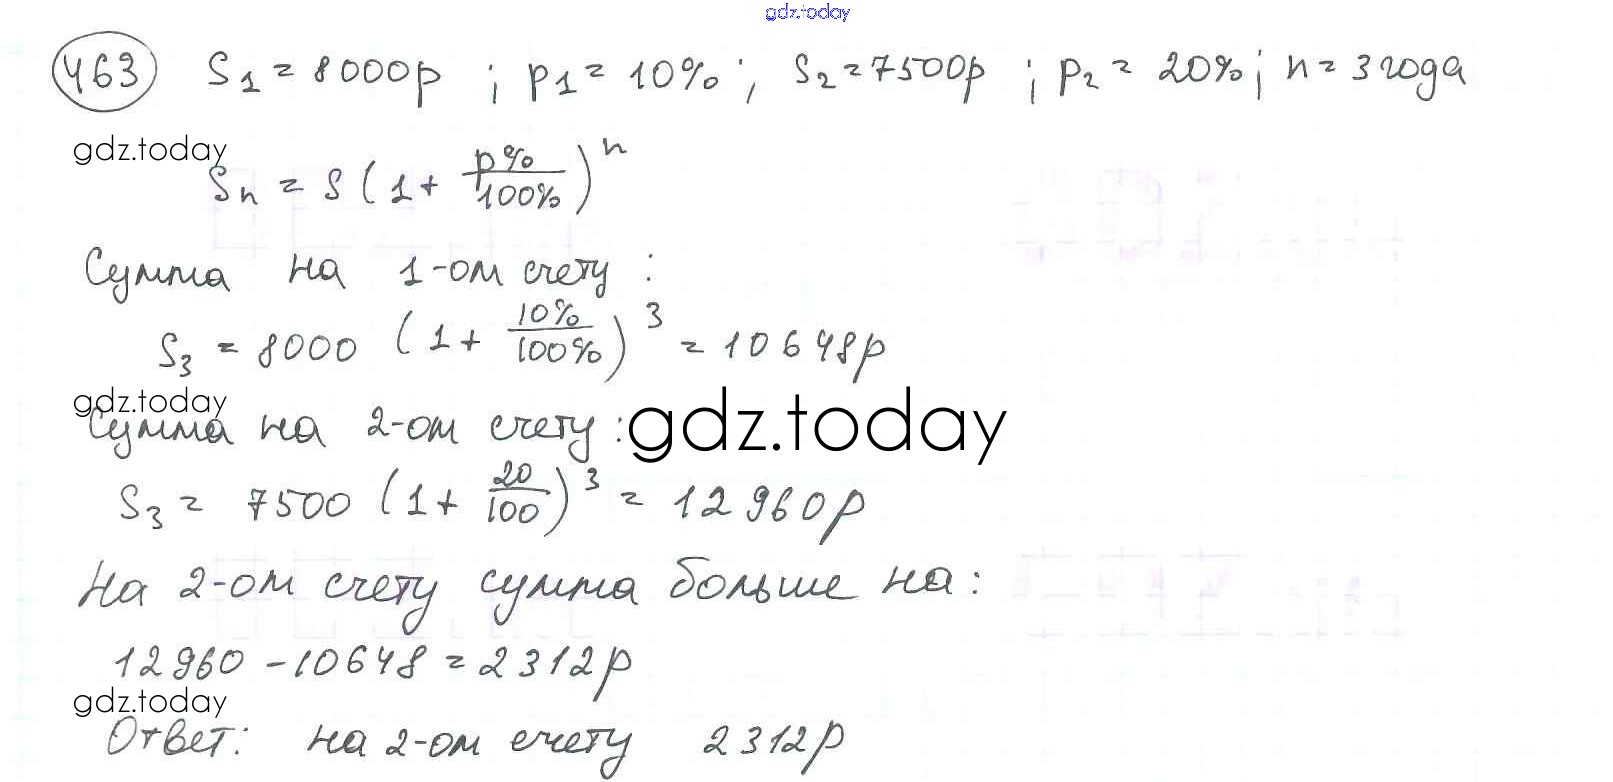 gdz.today
463 S₁ = 8000р ; p₁ = 10% ; S₂ = 7500р ; p₂ = 20% ; n = 3 года
gdz.today
Sₙ = S (1 + p%/100%)ⁿ
Сумма на 1-ом счету :
S₃ = 8000 (1 + 10%/100%)³ = 10648р
gdz.today
Сумма на 2-ом счету :
gdz.today
S₃ = 7500 (1 + 20/100)³ = 12960р
На 2-ом счету сумма больше на :
12960 - 10648 = 2312р
gdz.today
Ответ: на 2-ом счету 2312р